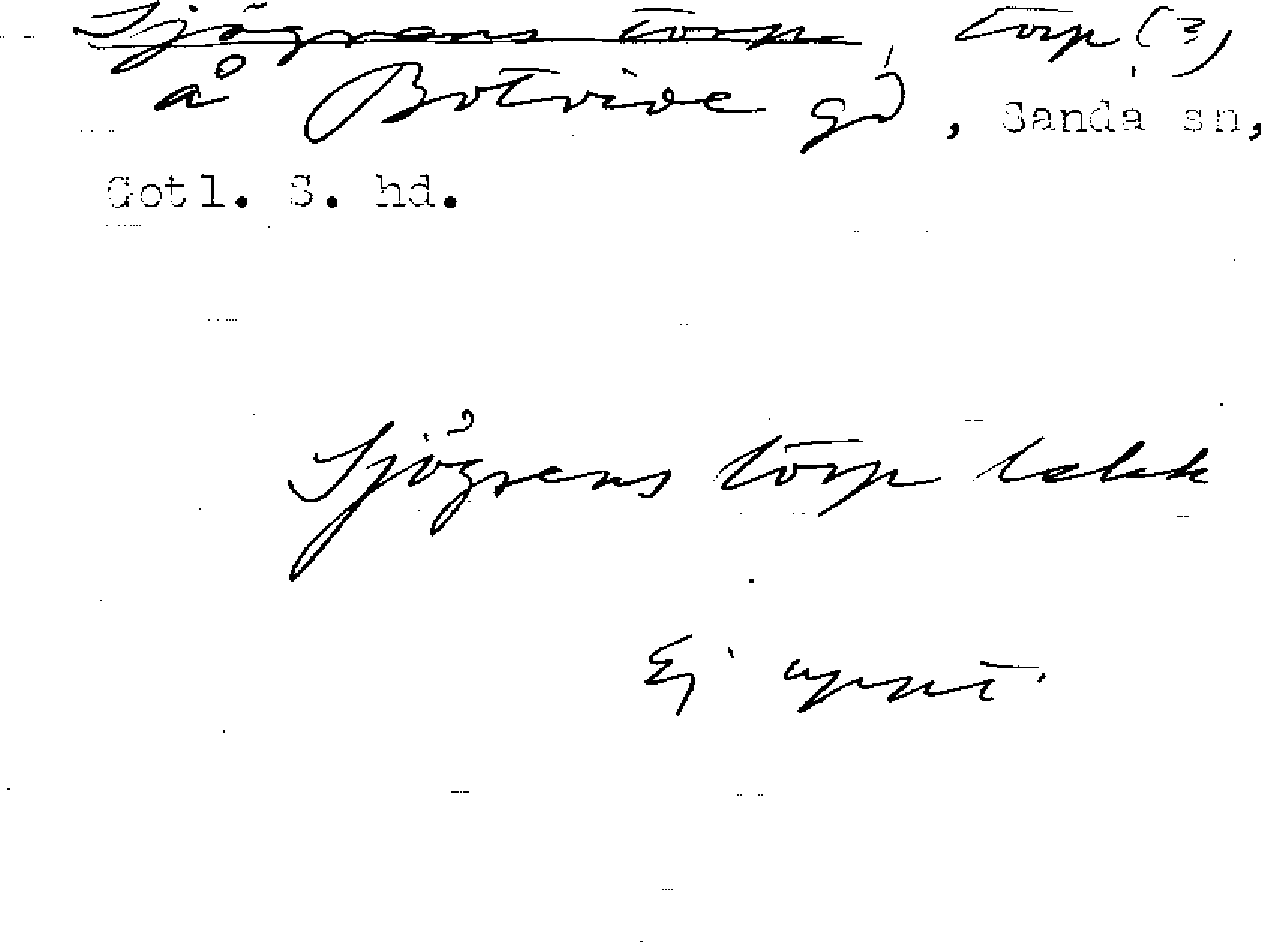 Sjögrens torp, torp (?)
å Botvide gd, Sanda sn,
Gotl. S. hd.
Sjögrens torp
Ej uppt.